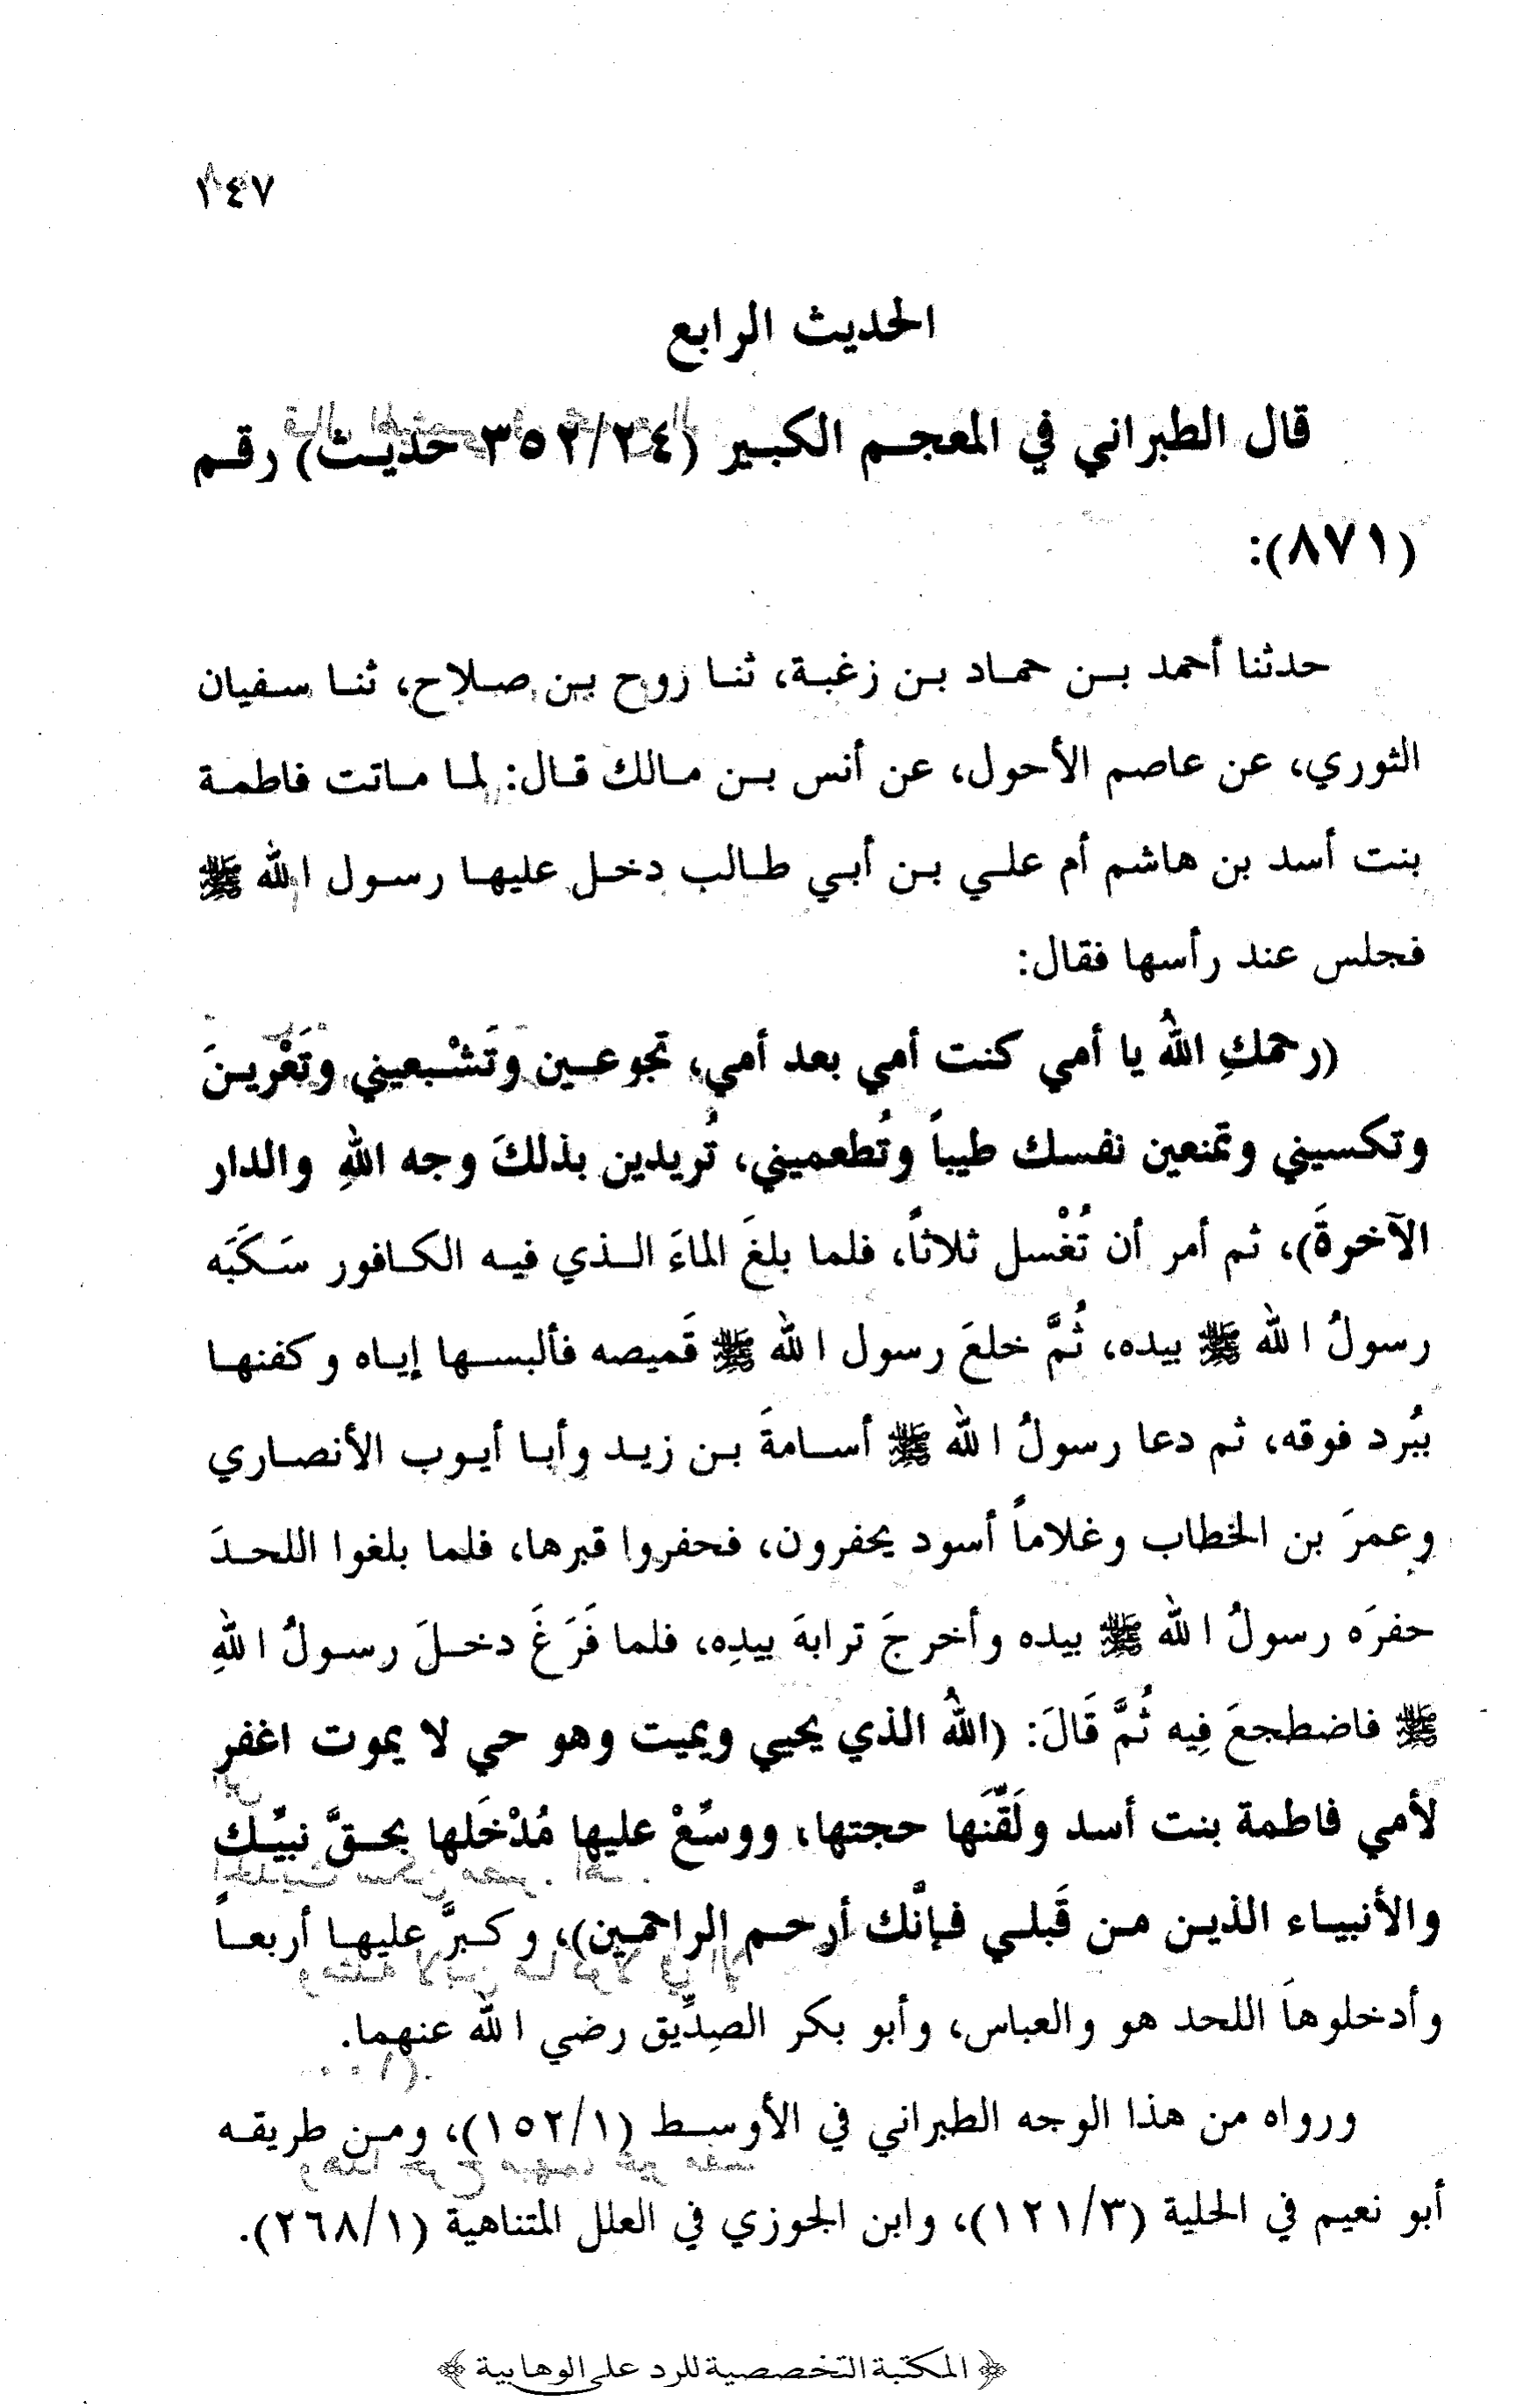 ١٤٧
الحديث الرابع
قال الطبراني في المعجم الكبير (٣٥٢/٢٤ حديث) رقم
(٨٧١):
حدثنا أحمد بن حماد بن زغبة، ثنا روح بن صلاح، ثنا سفيان
الثوري، عن عاصم الأحول، عن أنس بن مالك قال: لما ماتت فاطمة
بنت أسد بن هاشم أم علي بن أبي طالب دخل عليها رسول الله ﷺ
فجلس عند رأسها فقال:
(رحمكِ اللهُ يا أمي كنت أمي بعد أمي، تجوعين وتَشْبعيني وتَعْرينَ
وتكسيني وتمنعين نفسك طيباً وتُطعميني، تُريدين بذلكَ وجه اللهِ والدار
الآخرةَ)، ثم أمر أن تُغْسل ثلاثاً، فلما بلغَ الماءَ الذي فيه الكافور سَكَبَه
رسولُ الله ﷺ بيده، ثُمَّ خلعَ رسول الله ﷺ قَميصه فألبسها إياه وكفنها
ببُرد فوقه، ثم دعا رسولُ الله ﷺ أسامةَ بن زيد وأبا أيوب الأنصاري
وعمرَ بن الخطاب وغلاماً أسود يحفرون، فحفروا قبرها، فلما بلغوا اللحدَ
حفرَه رسولُ الله ﷺ بيده وأخرجَ ترابهَ بيدِه، فلما فَرَغَ دخلَ رسولُ اللهِ
ﷺ فاضطجعَ فِيه ثُمَّ قَالَ: (اللهُ الذي يحيي ويميت وهو حي لا يموت اغفر
لأمي فاطمة بنت أسد ولَقّنَها حجتها، ووسِّعْ عليها مُدْخَلها بحقَّ نبيِّك
والأنبياء الذين من قَبلي فإنَّك أرحم الراحمين)، وكبرَّ عليها أربعاً
وأدخلوهاَ اللحد هو والعباس، وأبو بكر الصِدِّيق رضي الله عنهما.
ورواه من هذا الوجه الطبراني في الأوسط (١٥٢/١)، ومن طريقه
أبو نعيم في الحلية (١٢١/٣)، وابن الجوزي في العلل المتناهية (٢٦٨/١).
﴿المكتبة التخصصية للرد على الوهابية﴾